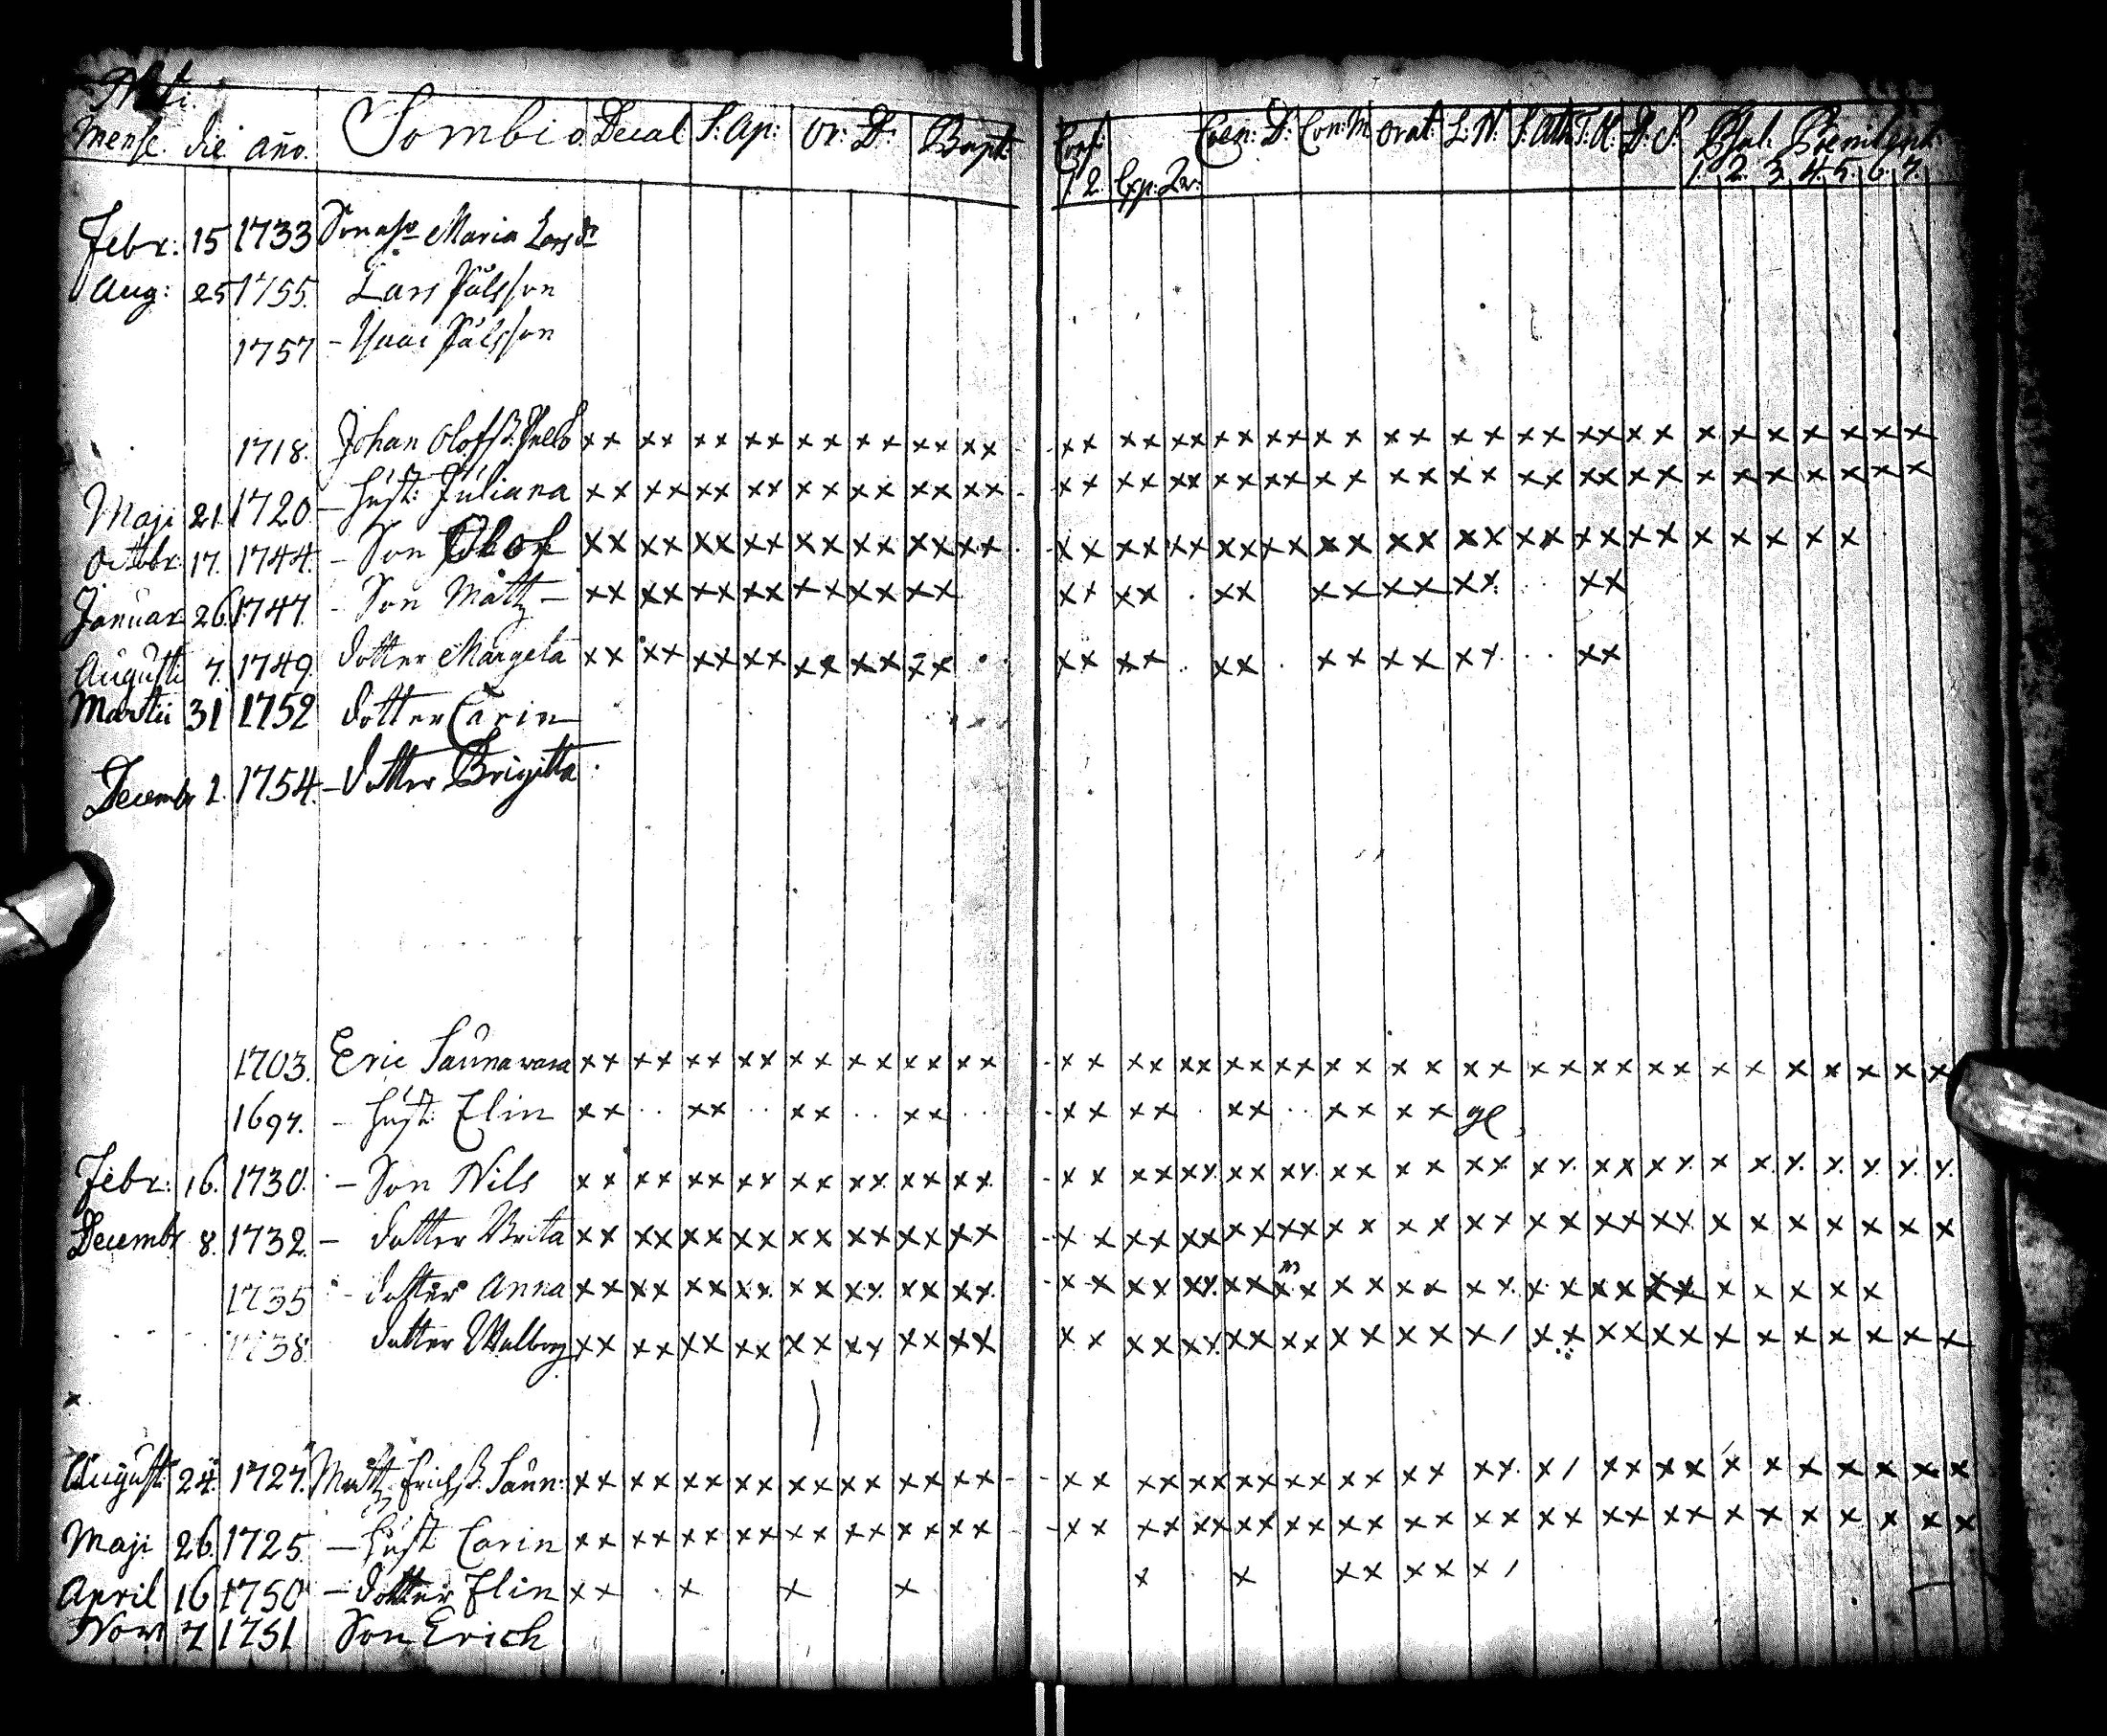 Nati.
Mense. die año. Sombio. Decal: S: Ap: Or: D: Bapt:
Conf: Coen: D: Con: M Orat: L: N: S: Ath: T. H: D: S. Psal: Poenitent:
1 2 Exp: 1. 2. 3. 4. 5. 6. 7.
Febr: 15 1733 Maria Larsdr
Aug: 25 1755 Lars Pålsson
1757 - Isaac Pålsson
1718. Johan Olofss. xx xx xx xx xx xx xx xx xx xx xx xx xx xx xx xx xx xx xx x x x x x x x
Maji 21 1720 - Hust: Juliana xx xx xx xx xx xx xx xx xx xx xx xx xx xx xx xx xx xx xx x x x x x x x
Octobr: 17. 1744. - Son Olof xx xx xx xx xx xx xx xx xx xx xx xx xx xx xx xx xx xx xx x x x x x
Januar 26. 1747. - Son Mattz - xx xx xx xx xx xx xx xx xx xx xx xx xx xx
Augusti 7. 1749. dotter Margeta xx xx xx xx xx xx xx xx xx xx xx xx xx xx
Martii 31 1752 dotter Carin
Decembr 1. 1754. - dotter Brigitta.
1703. Eric Saunawara xx xx xx xx xx xx xx xx xx xx xx xx xx xx xx xx xx xx xx x x x x x x x
1697. - Hust: Elin xx .. xx .. xx .. xx .. xx xx . xx .. xx xx
Febr: 16. 1730. - Son Nils xx xx xx xx xx xx xx xx xx xx xx xx xx xx xx xx xx xx xx x x x x x x x
Decembr 8. 1732. - dotter Brita xx xx xx xx xx xx xx xx xx xx xx xx xx xx xx xx xx xx xx x x x x x x x
1735 - dotter Anna xx xx xx xx xx xx xx xx xx xx xx xx xx xx xx xx xx xx xx x x x x x
1738 dotter Walborg xx xx xx xx xx xx xx xx xx xx xx xx xx xx xx x/ xx xx xx x x x x x x x
August: 24. 1727. Mattz Erichss. Saun: xx xx xx xx xx xx xx xx xx xx xx xx xx xx xx xx x/ xx xx x x x x x x x
Maji 26. 1725. - Hust Carin xx xx xx xx xx xx xx xx xx xx xx xx xx xx xx xx xx xx xx x x x x x x x
April 16 1750 - dotter Elin xx x x x x x xx xx x/
Novr 7 1751 Son Erich